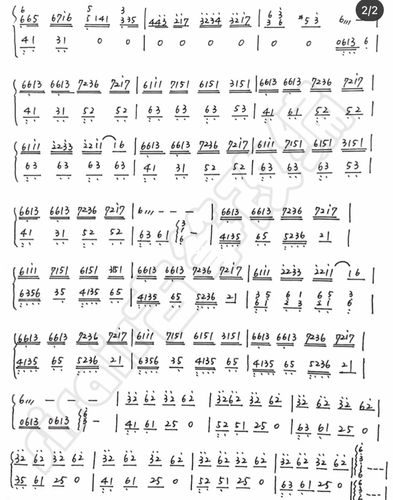 2/2
6 5 3
665 67i6 5141 335 | 443 217 3234 3217 | 63 36 #5 3 | 6,,, - |
41 31 0 0 | 0 0 0 0 | 0 0 0 | 0613 6
6613 6613 7236 7217 | 6111 7151 6151 3151 | 6613 6613 7236 7217 |
41 31 52 52 | 63 63 63 53 | 41 61 52 52 |
6111 2233 2211 16 | 6613 6613 7236 7217 | 6111 7151 6151 3151 |
63 63 63 63 | 41 31 52 52 | 63 63 63 53 |
6613 6613 7236 7217 | 6,,, - - | 6613 6613 7236 7217 |
41 31 52 52 | 63 61 | 4135 65 5236 21 |
6111 7151 6151 351 | 6613 6613 7236 7217 | 6111 2233 2211 16 |
6356 35 4135 65 | 4135 65 5236 21 |
6613 6613 7236 7217 | 6111 7151 6151 3151 | 6613 6613 7236 7217 |
4135 65 5236 21 | 6356 35 4135 65 | 4135 65 5236 21 |
6,,, - - - | 32 62 32 62 | 3262 32 62 | 32 62 32 62 |
0613 0613 | 41 61 25 0 | 52 51 25 0 | 63 61 25 0 |
32 62 32 62 | 32 62 32 62 | 32 62 32 62 | 32 62 32 62 |
35 61 25 0 | 41 61 25 0 | 52 51 25 0 | 63 61 25 0 |